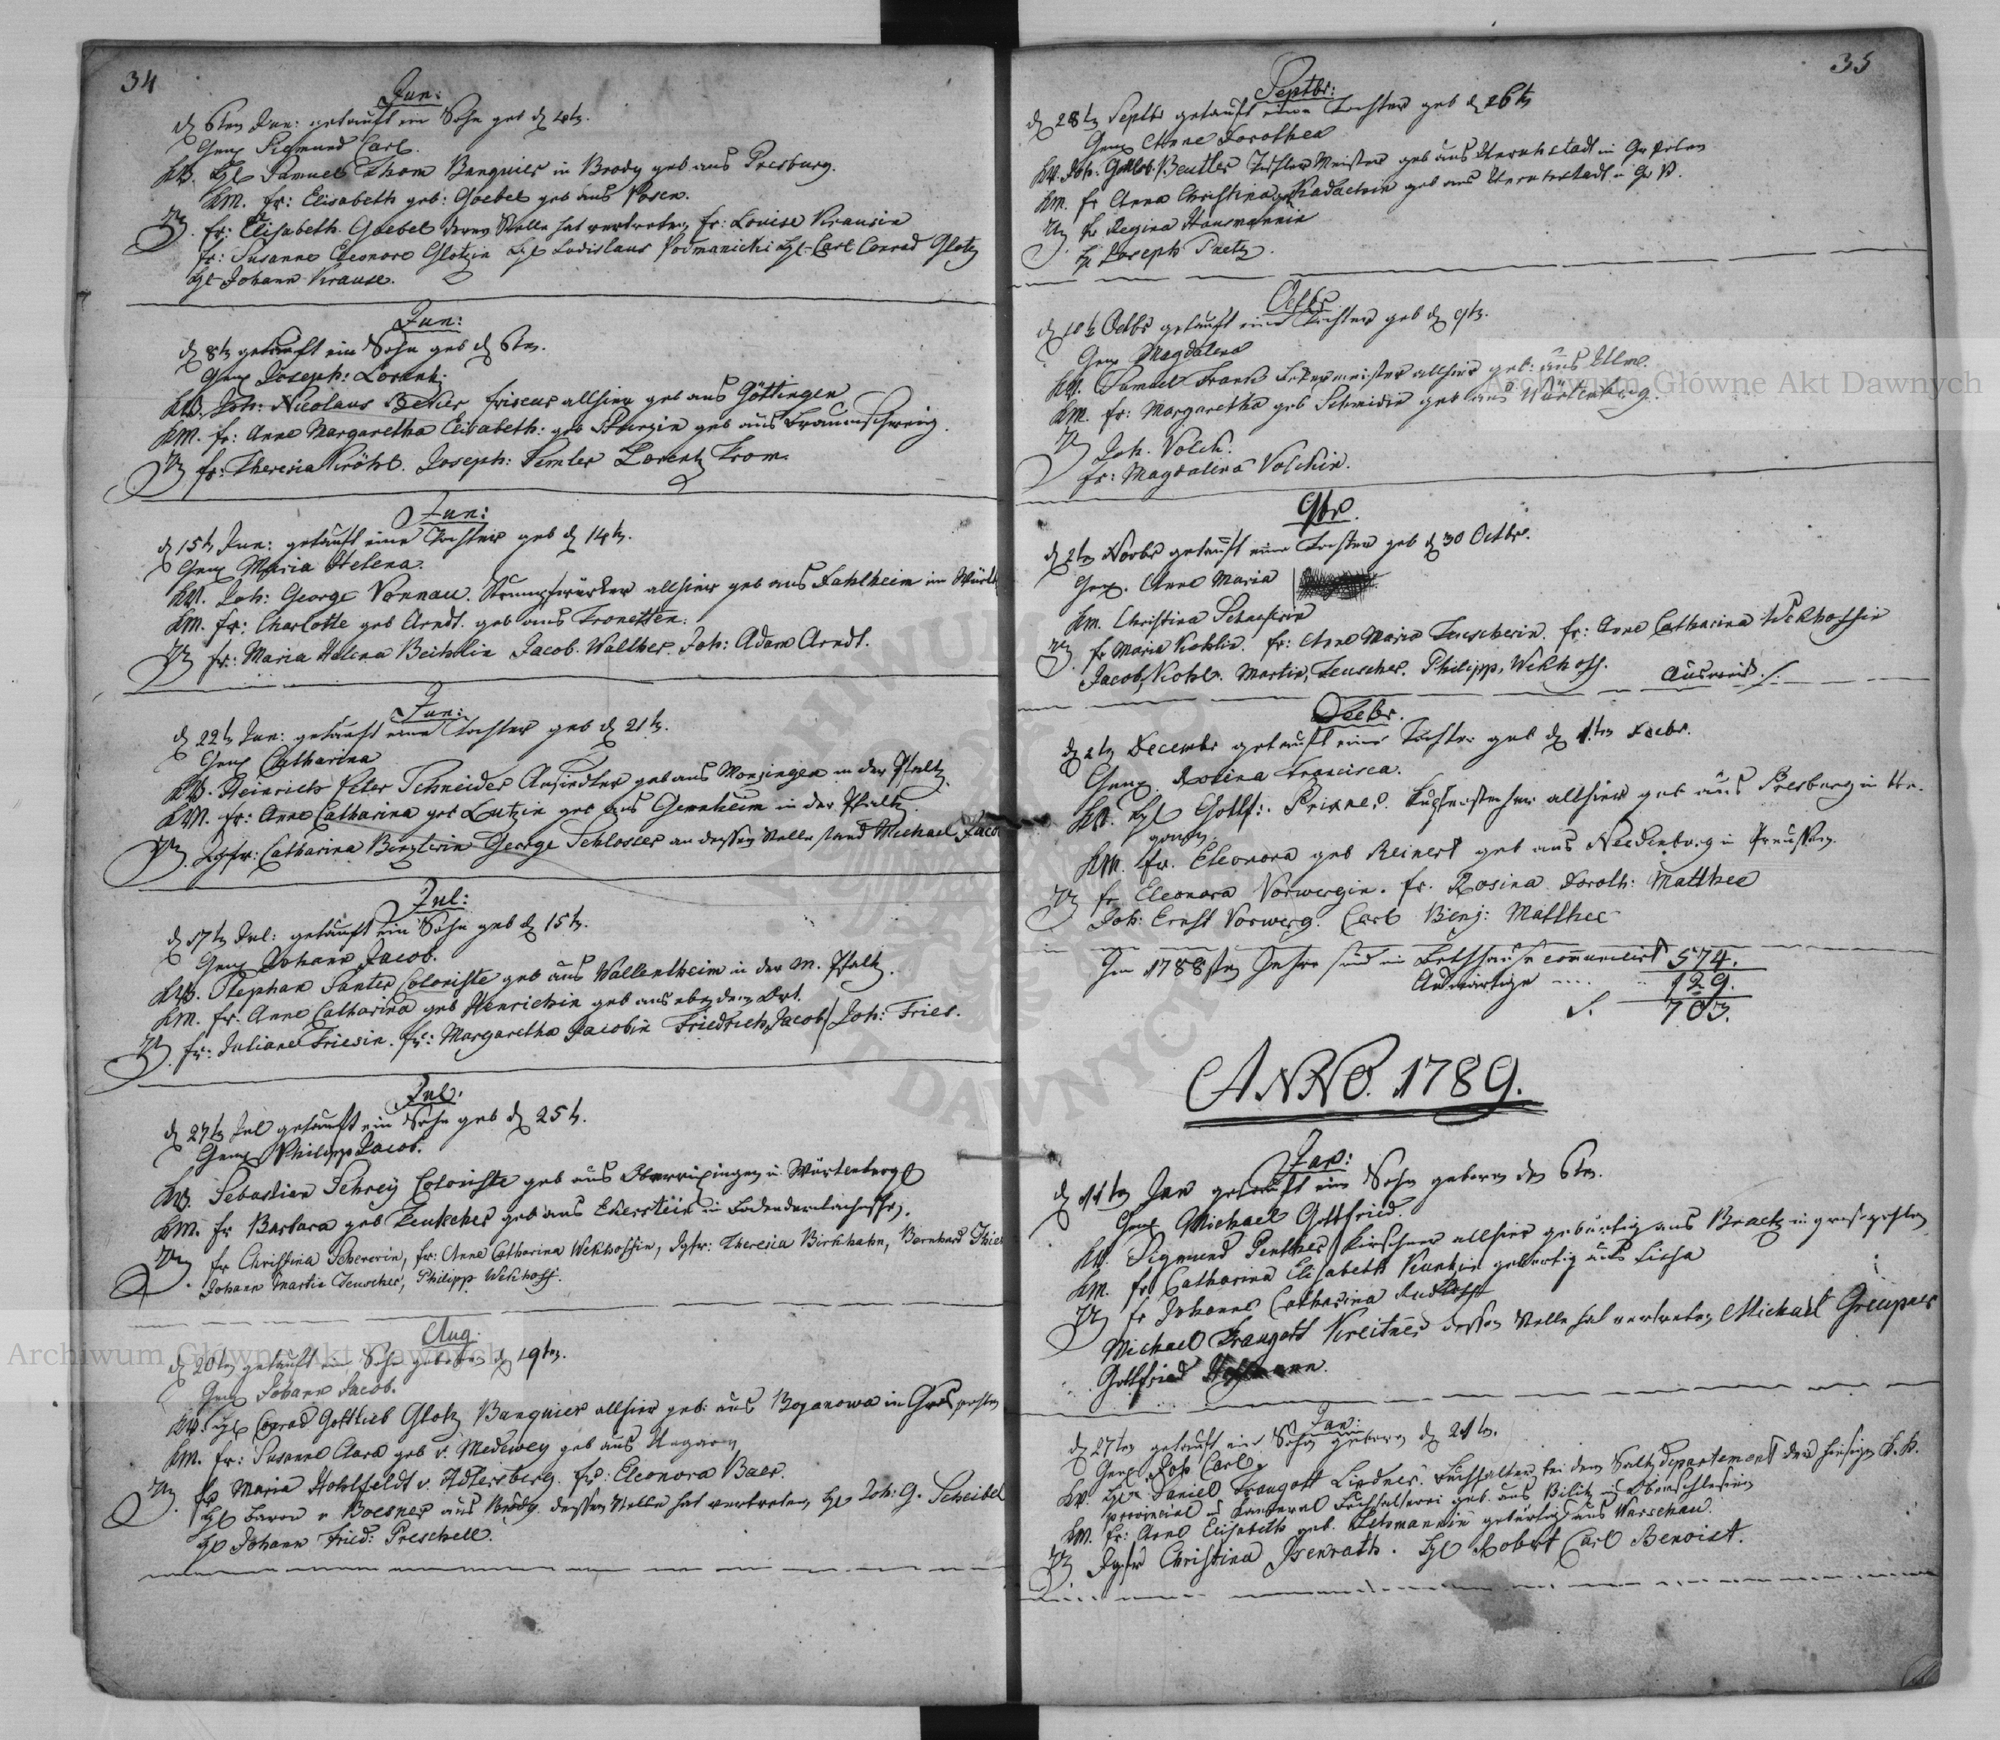 34
Jun:
d 6ten Jun: getauft ein Sohn geb d 4tn.
Gen: Sigmund Carl.
KV. H: Samuel Thom Banquier in Brody geb aus Presburg.
KM. fr: Elisabeth geb: Goebel geb aus Posen.
fr: Elisabeth Goebel deren Stelle hat vertreten fr: Louise Krausin
fr: Susanne Eleonore Glotzin H: Ladislaus Podmanicki H: Carl Conrad Glotz
H: Johann Krause.
Jun:
d 8tn getauft ein Sohn geb d 6tn.
Gen: Joseph: Lorentz
KV. Joh: Nicolaus Beker friseur allhier geb aus Göttingen
KM. fr: Anne Margaretha Elisabeth: geb geb aus Braunschweig.
fr: Theresia Kröhl. Joseph: Semler Lorentz Krom.
Jun:
d 15tn Jun: getauft eine Tochter geb d 14tn.
Gen: Maria Helena.
KV. Joh: George Vonnau. Strumpfwürker allhier geb aus Fahlheim im Würt
KM. fr: Charlotte geb Arndt. geb aus Fronetten.
fr: Maria Helena Beichlin Jacob Walther. Joh: Adam Arndt.
Jun:
d 22tn Jun: getauft eine Tochter geb d 21tn.
Gen: Catharina
KV. Heinrich Peter Schneider Ansiedler geb aus Monzingen in der Pfaltz.
KM. fr: Anne Catharina geb Lutzin geb aus Gernheim in der Pfaltz
Jgfr: Catharina Binzlerin George Schlosser an dessen Stelle stand Michael Jaco
Jul:
d 17tn Jul: getauft ein Sohn geb d 15tn.
Gen: Johann Jacob.
KV. Stephan Santer Coloniste geb aus Wallertheim in der Pfaltz.
KM. fr. Anne Catharina geb Henrichin geb aus eben dem Ort.
fr: Juliane Friesin. fr: Margaretha Jacobin Friedrich Jacob Joh: Fries.
Jul.
d 27tn Jul getauft ein Sohn geb d 25tn.
Gen: Philipp Jacob.
KV. Sebastian Schrey Coloniste geb aus Oberrixingen in Würtenberg
KM. fr Barbara geb Teuscher geb aus Eberstein in
fr Christina Schererin, fr: Anne Catharina Wekhoffin, Jgfr: Theresia Birkhahn, Bernhard
Johann Martin Teuscher, Philipp Wekhoff.
Aug.
d 20ten getauft ein Sohn geboren d 19ten.
Gen: Johann Jacob.
KV: H: Conrad Gottlieb Glotz Banquier allhier geb: aus Bojanowa in Gros polen
KM. fr: Susanne Clara geb v. Medewey geb aus Ungarn
fr Maria Hohlfeldt v. Adlersberg. fr: Eleonora Baer.
H: Baron v Boesner aus Brody. dessen Stelle hat vertreten H: Joh: G. Scheibel
H: Johann Fried: Preschell.
35
Septbr:
d 28tn Septbr getauft eine Tochter geb d 26tn
Gen: Anne Dorothea
KV. Joh: Gottlob Beutler Tischler Meister geb aus Unruhstadt in Gr Polen
KM. fr Anna Christina geb aus Unruhstadt in Gr P.
fr Regina Hansmannin
H: Joseph Paetz.
Octbr
d 10tn Octbr getauft eine Tochter geb d 9tn.
Gen: Magdalena
KV. Samuel Frank allhier geb: aus Ulm.
KM. fr: Margaretha geb Schmidin geb aus Würtenberg.
Joh. Volck.
fr: Magdalena Volckin.
9br.
d 2tn Novbr getauft eine Tochter geb d 30 Octbr.
Gen: Anne Maria
KM. Christina Schaeferin
fr Maria Kohlin. fr: Anne Maria Teuscherin. fr: Anne Catharina Wekhoffin
Jacob Kohl. Martin Teuscher. Philipp Wekhoff.
Decbr.
d 2tn Decembr getauft eine Tochter geb d 1ten Decbr.
Gen: Rosina Francisca.
KV. H: Gottf: Prixner. Kupferstecher allhier geb aus Presburg in Un-
garn.
KM. fr. Eleonora geb Reinert geb aus Neidenburg in Preussen.
fr Eleonora Vorwergin. fr. Rosina Doroth: Matthee
Joh: Ernst Vorwerg. Carl Benj: Matthee
Im 1788sten Jahre sind im Bethhause communicirt 574.
Auswärtige .... 129.
S. 703.
ANNO. 1789.
Jan:
d 11ten Jan getauft ein Sohn geboren den 6tn.
Gen: Michael Gottfried.
KV. Sigmund Penther Kirschner allhier gebürtig aus Braetz in gros polen
KM. fr Catharina Elisabeth gebürtig aus Lissa
fr Johanne Catharina Rudolph
Michael Traugott Kreitner dessen Stelle hat vertreten Michael Greupner
Gottfried Hoffmann.
Jan:
d 27ten getauft ein Sohn geboren d 21tn.
Gen: Joh Carl.
KV. H: Daniel Traugott Lindner. Buchhalter bei dem Saltz departement der hiesigen K. K.
provincial u Kameral Buchhalterei geb. aus Bilitz in Oberschlesien
KM. fr: Anne Elisabeth geb. Lehmannin gebürtig aus Warschau.
Jgfr Christina Isenrath. H: Robert Carl Benoist.